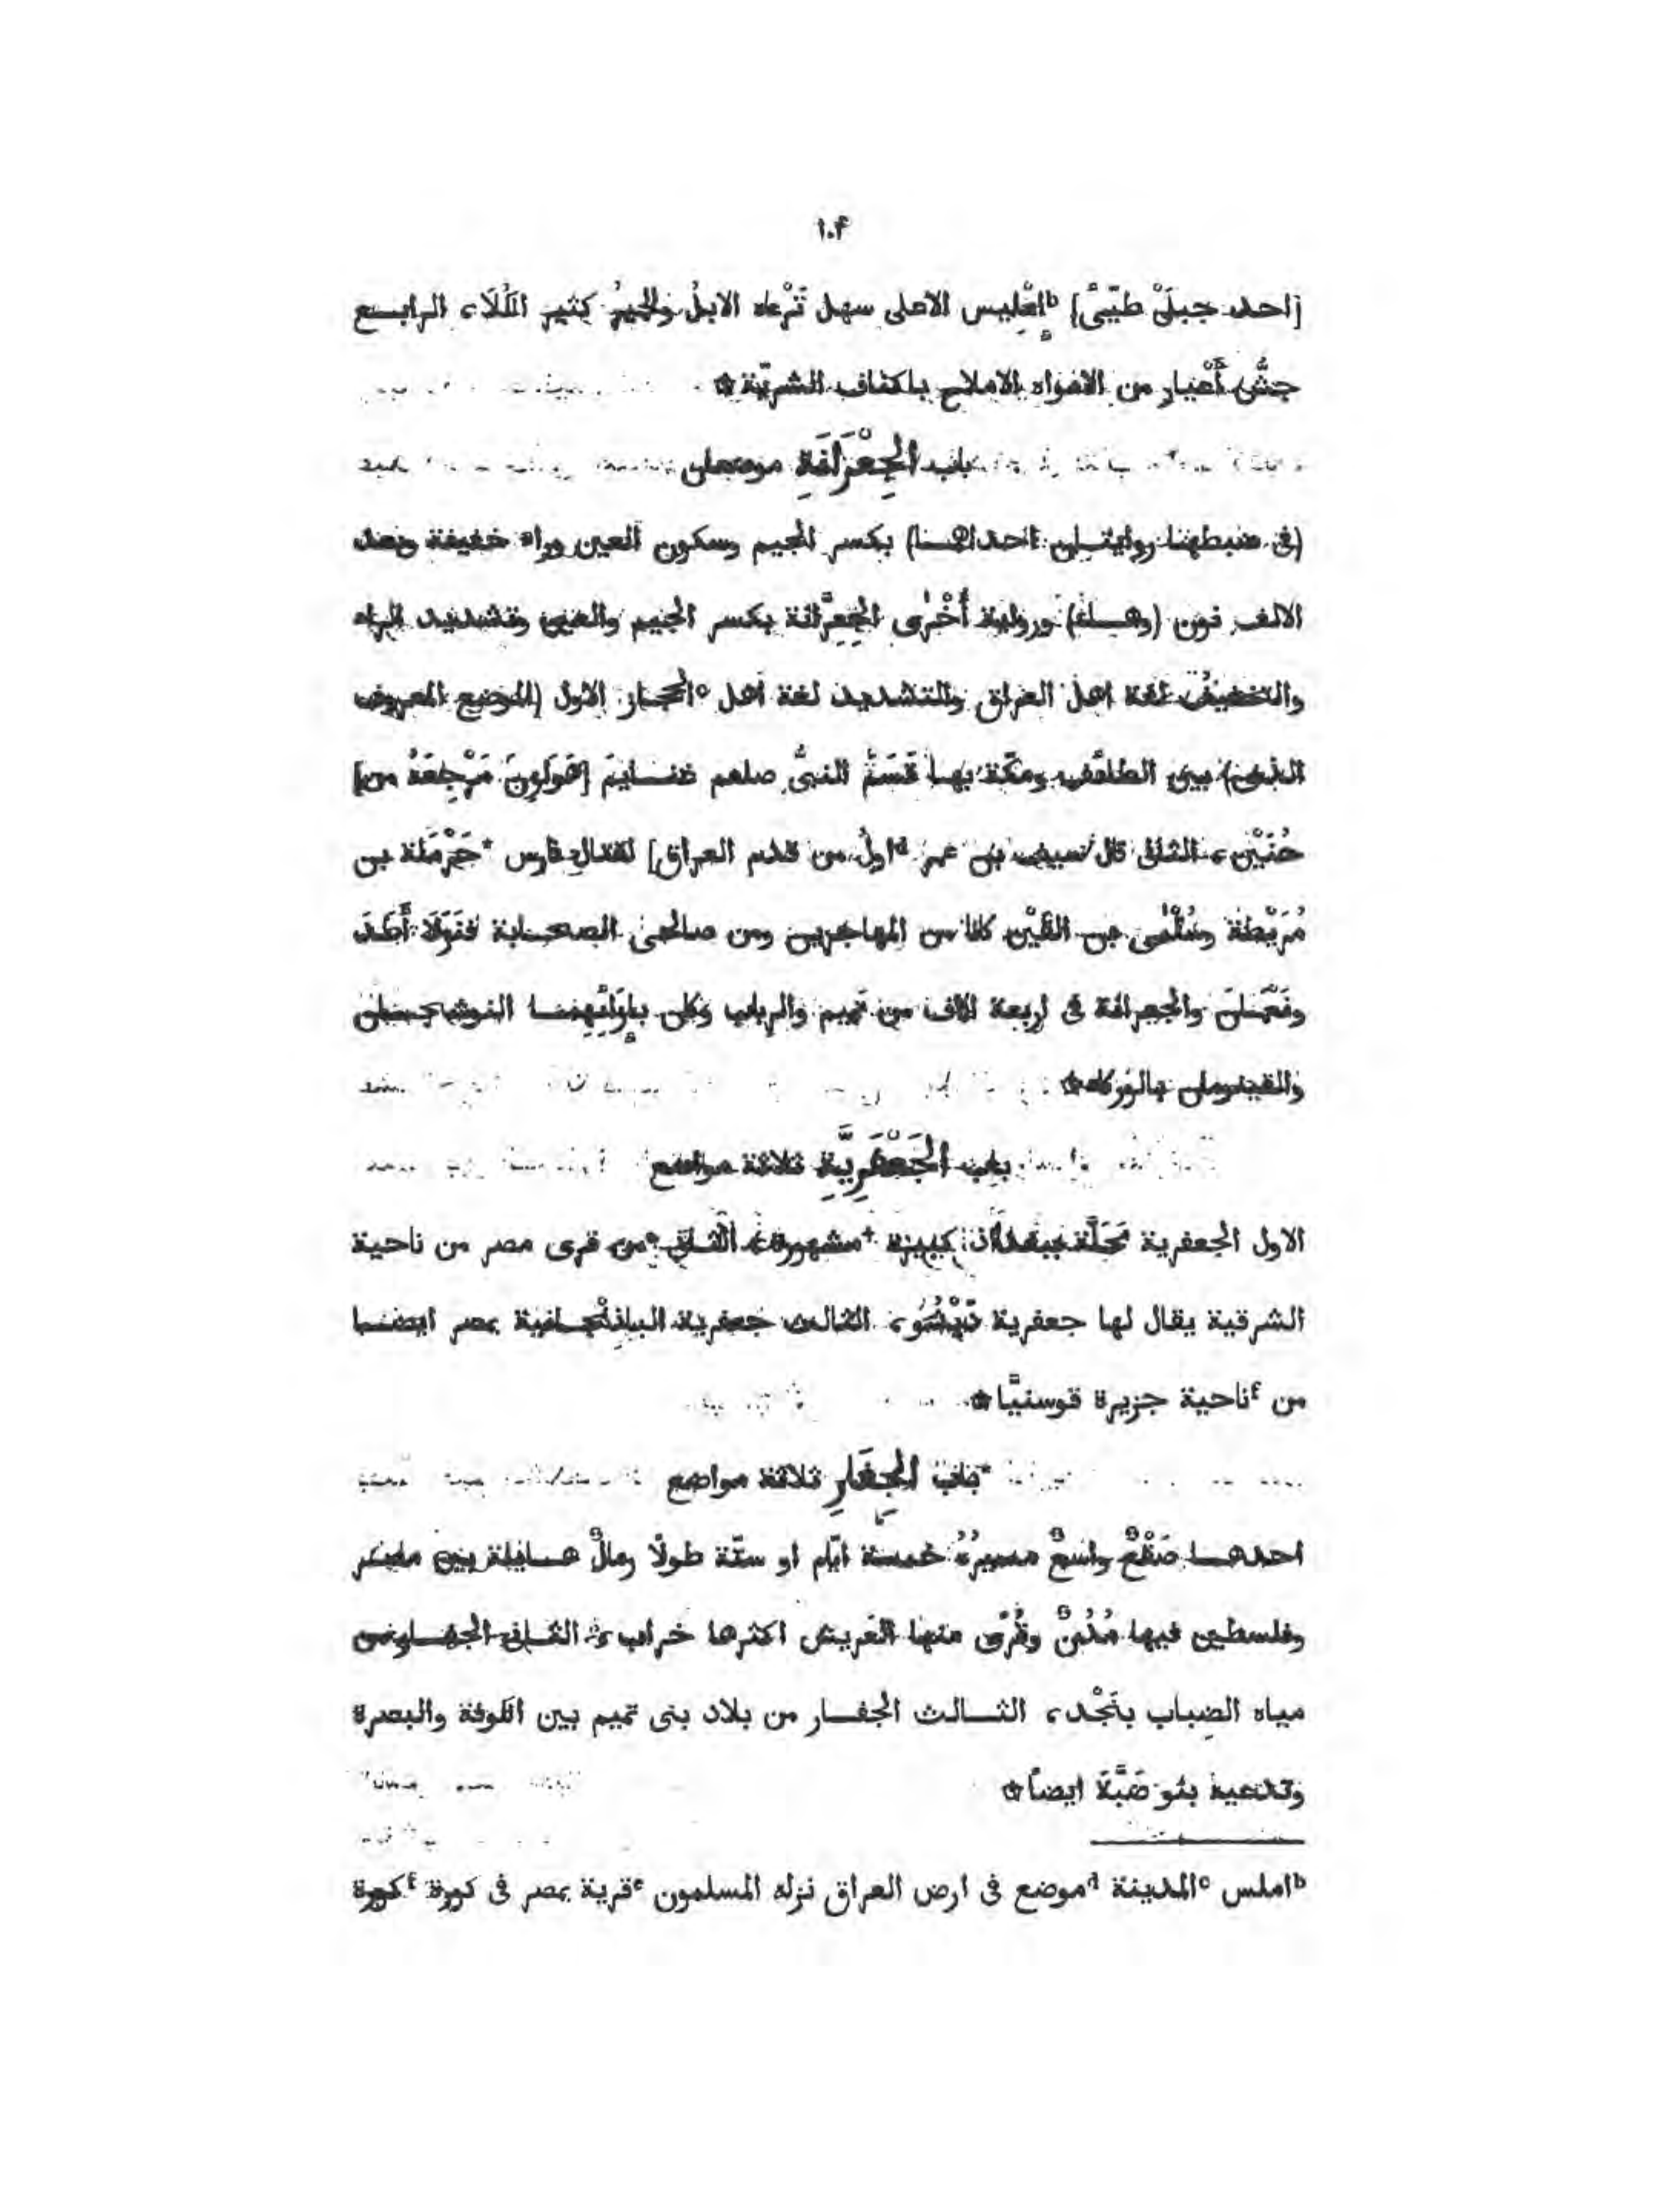 ١٠٤
[احد جبلَىْ طيّئ] ᵇاِمْليس الاعلى سهل تَرْعاه الابلُ والحميرُ كثير الكَلَاء، الرابـــع
جشُّ أَعْيارٍ من الافواه الاملاح باكناف الشربّة ۞
باب الجِعْرَانَةِ موضعان
(فى ضبطهـا روايتــان احداهــا) بكسر الجيم وسكون العين وراء خفيفة وبعد
الالف نون (وهــاء) ورواية أُخْرى الجِعِرَّانة بكسر الجيم والعين وتشديد الراء
والتخفيفُ لغة اهل العراق والتشديد لغة اهل ᶜالحجــاز الاول (الموضع المعروف
الذى) بين الطائف ومكّة بهــا قَسَمَ النبىُّ صلعم غنــايمَ [هَوازِنَ مَرْجِعَهُ من]
حُنَيْن، الثانى قال سيف بن عمر ᵈاولُ من قدم العراق] لقتال فارس *حَرْمَلة بن
مُرَيْطة وسُلْمى بن القَيْن كانا من المهاجرين ومن صالحى الصحــابة فنَزَلَا أَطَدَ
ونَعْمَــانَ والجعرانة فى اربعة الاف من تميم والرباب وكان بِإِزَائِهِمــا النوشجــان
والفيومان بالوركاء ۞
باب الجَعْفَرِيَّةِ ثلاثة مواضع
الاول الجعفرية مَحَلَّة ببغداذ كبيرة *مشهورة، الثــانى ᵉمن قرى مصر من ناحية
الشرقية يقال لها جعفرية دَبِشُو، الثالث جعفرية الباذنْجــانية بمصر ايضــا
من ᶠناحية جزيرة قوسنيَّا ۞
*باب الجِفَارِ ثلاثة مواضع
احدهــا صَقْعٌ واسعٌ مسيرُهُ خمسة ايّام او ستّة طولًا رمالٌ هــايلة بين مصــر
وفلسطين فيها مُدُنٌ وقُرًى منها العَريش اكثرها خراب، الثــانى الجفــار من
مياه الضِباب بنَجْد، الثــالث الجفــار من بلاد بنى تميم بين الكوفة والبصرة
وتدعيه بنو ضَبَّة ايضًا ۞
ᵇاملس ᶜالمدينة ᵈموضع فى ارض العراق نزله المسلمون ᵉقرية بمصر فى كورة ᶠكورة